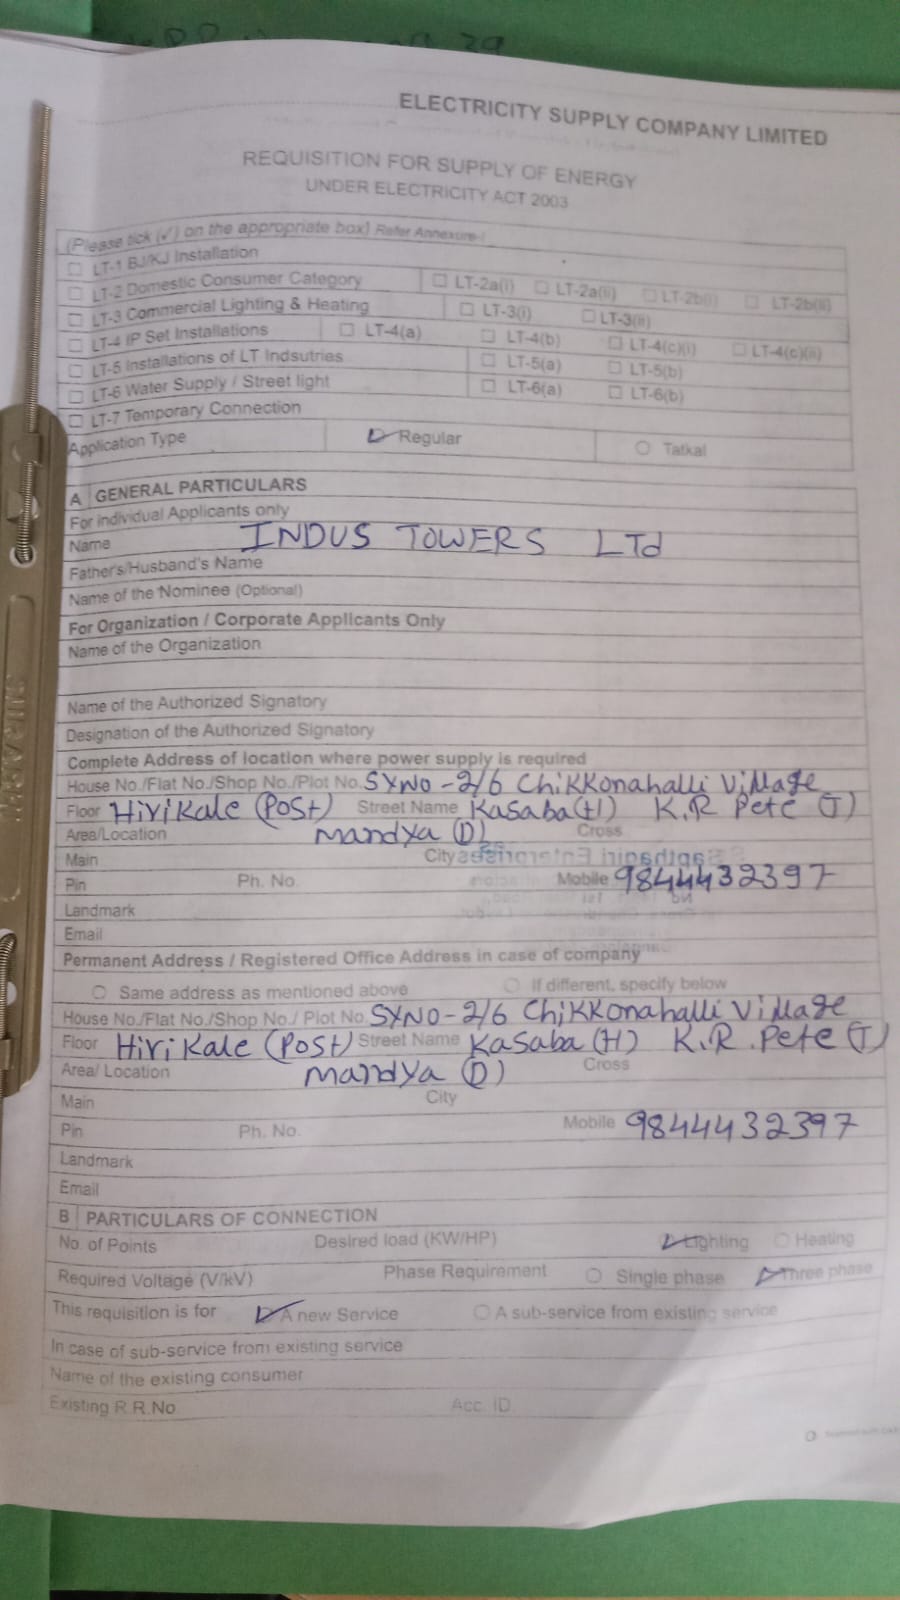 ELECTRICITY SUPPLY COMPANY LIMITED
REQUISITION FOR SUPPLY OF ENERGY
UNDER ELECTRICITY ACT 2003
(Please tick (✓) on the appropriate box) Refer Annexure-I
☐ LT-1 BJ/KJ Installation
☐ LT-2 Domestic Consumer Category ☐ LT-2a(i) ☐ LT-2a(ii) ☐ LT-2b(i) ☐ LT-2b(ii)
☐ LT-3 Commercial Lighting & Heating ☐ LT-3(i) ☐ LT-3(ii)
☐ LT-4 IP Set Installations ☐ LT-4(a) ☐ LT-4(b) ☐ LT-4(c)(i) ☐ LT-4(c)(ii)
☐ LT-5 Installations of LT Indsutries ☐ LT-5(a) ☐ LT-5(b)
☐ LT-6 Water Supply / Street light ☐ LT-6(a) ☐ LT-6(b)
☐ LT-7 Temporary Connection
Application Type Regular Tatkal
A GENERAL PARTICULARS
For individual Applicants only
Name INDUS TOWERS LTd
Father's/Husband's Name
Name of the Nominee (Optional)
For Organization / Corporate Applicants Only
Name of the Organization
Name of the Authorized Signatory
Designation of the Authorized Signatory
Complete Address of location where power supply is required
House No./Flat No./Shop No./Plot No. SYNO-2/6 Chikkonahalli Village
Floor Hirikale (Post) Street Name Kasaba (H) K.R Pete (T)
Area/Location Mandya (D) Cross
Main City
Pin Ph. No. Mobile 9844432397
Landmark
Email
Permanent Address / Registered Office Address in case of company
Same address as mentioned above If different, specify below
House No./Flat No./Shop No./ Plot No. SYNO-2/6 Chikkonahalli Village
Floor Hirikale (Post) Street Name Kasaba (H) K.R.Pete (T)
Area/ Location Mandya (D) Cross
Main City
Pin Ph. No. Mobile 9844432397
Landmark
Email
B PARTICULARS OF CONNECTION
No. of Points Desired load (KW/HP) Lighting Heating
Required Voltage (V/kV) Phase Requirement Single phase Three phase
This requisition is for A new Service A sub-service from existing service
In case of sub-service from existing service
Name of the existing consumer
Existing R.R.No Acc. ID